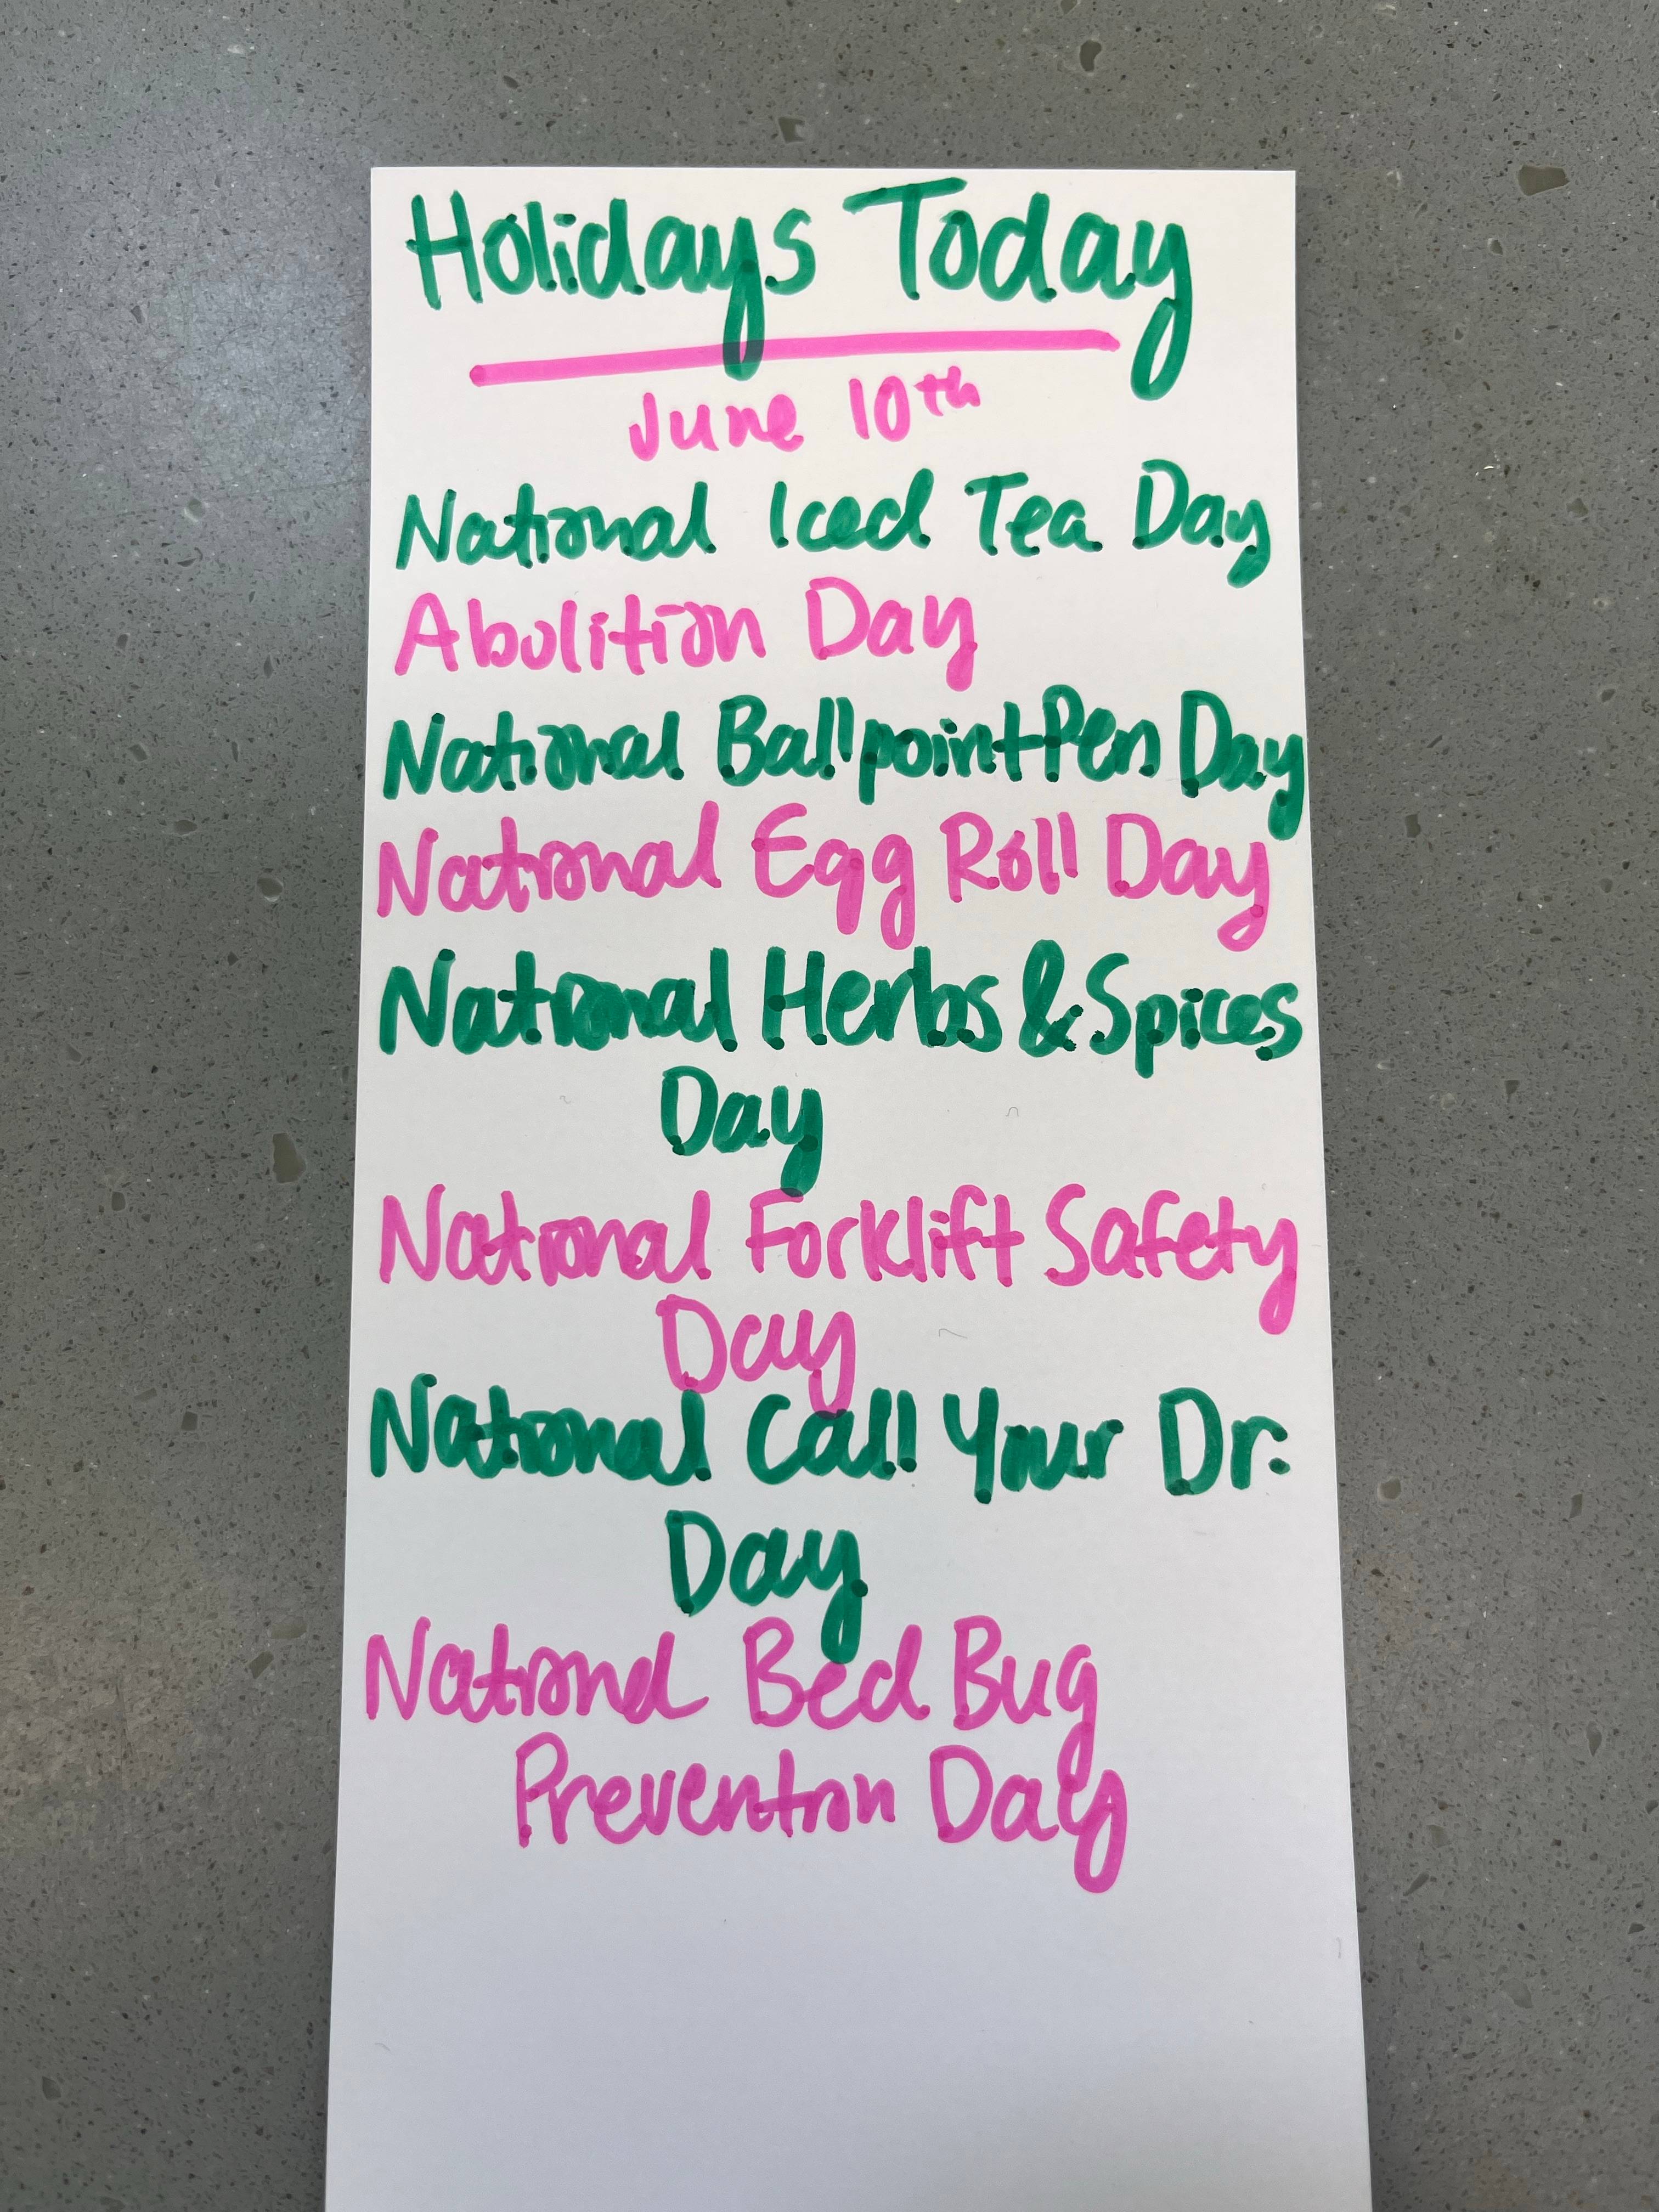 Holidays Today
June 10th
National Iced Tea Day
Abolition Day
National Ballpoint Pen Day
National Egg Roll Day
National Herbs & Spices
Day
National Forklift Safety
Day
National Call Your Dr.
Day
National Bed Bug
Prevention Day